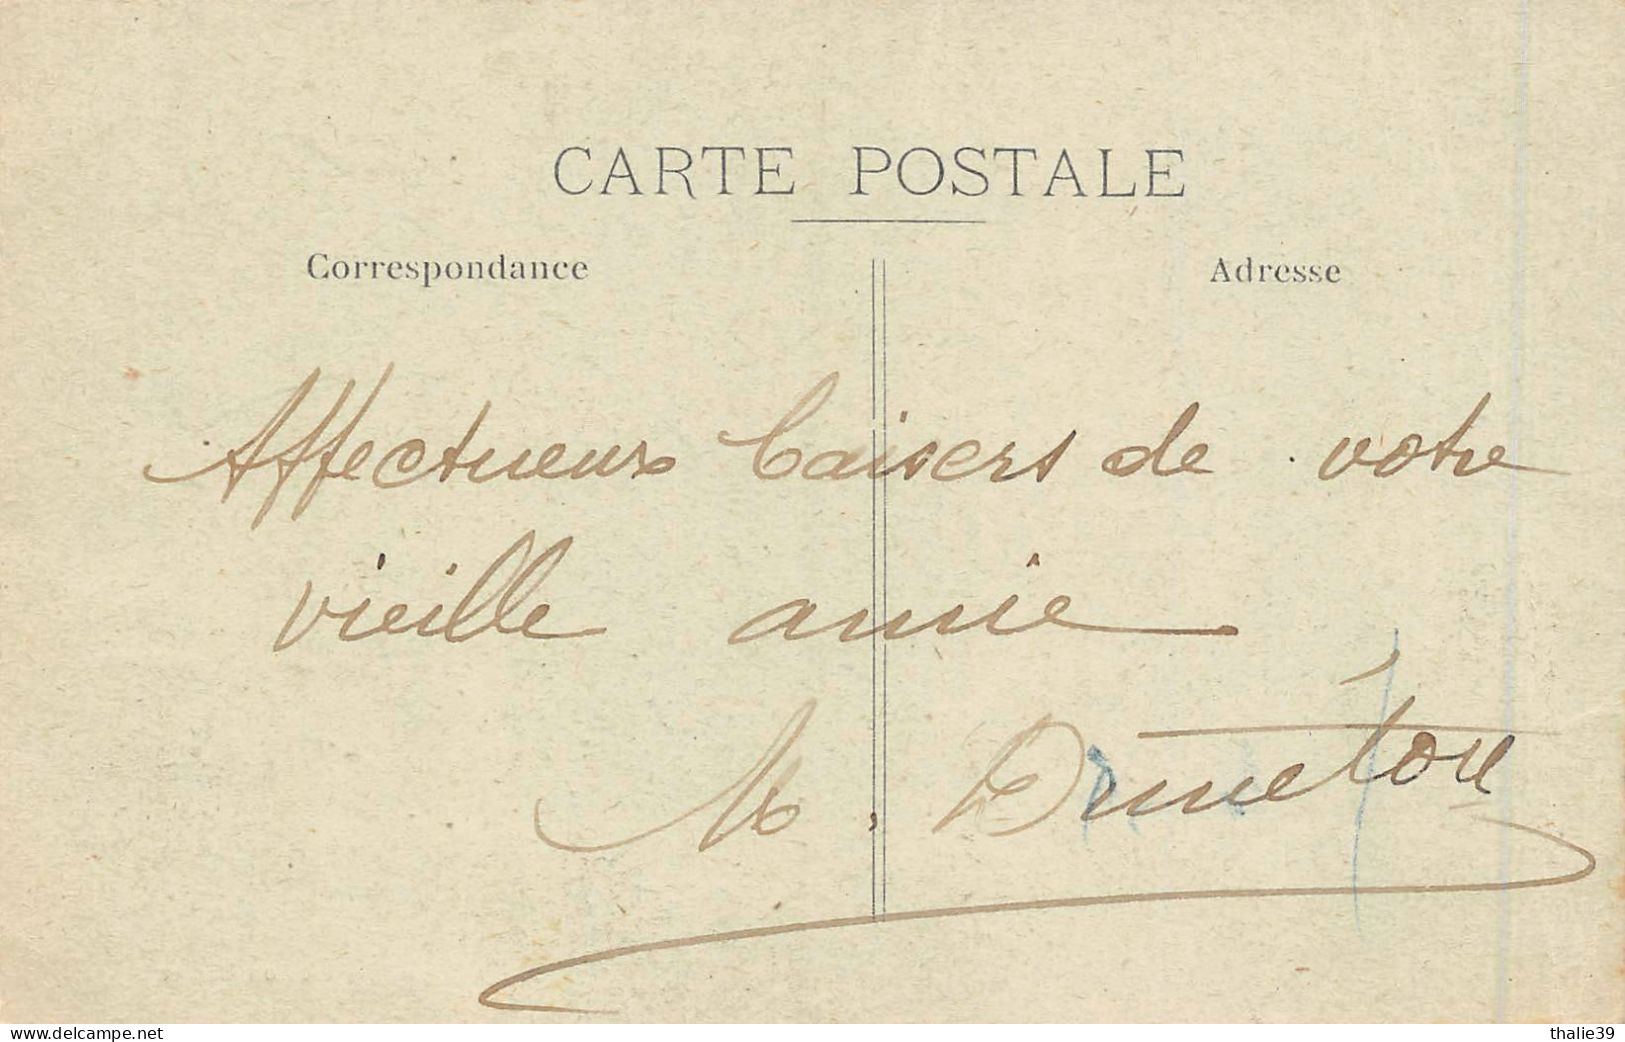 CARTE POSTALE
Correspondance
Adresse
Affectueux baisers de votre
vieille amie
M.
www.delcampe.net
thalie39